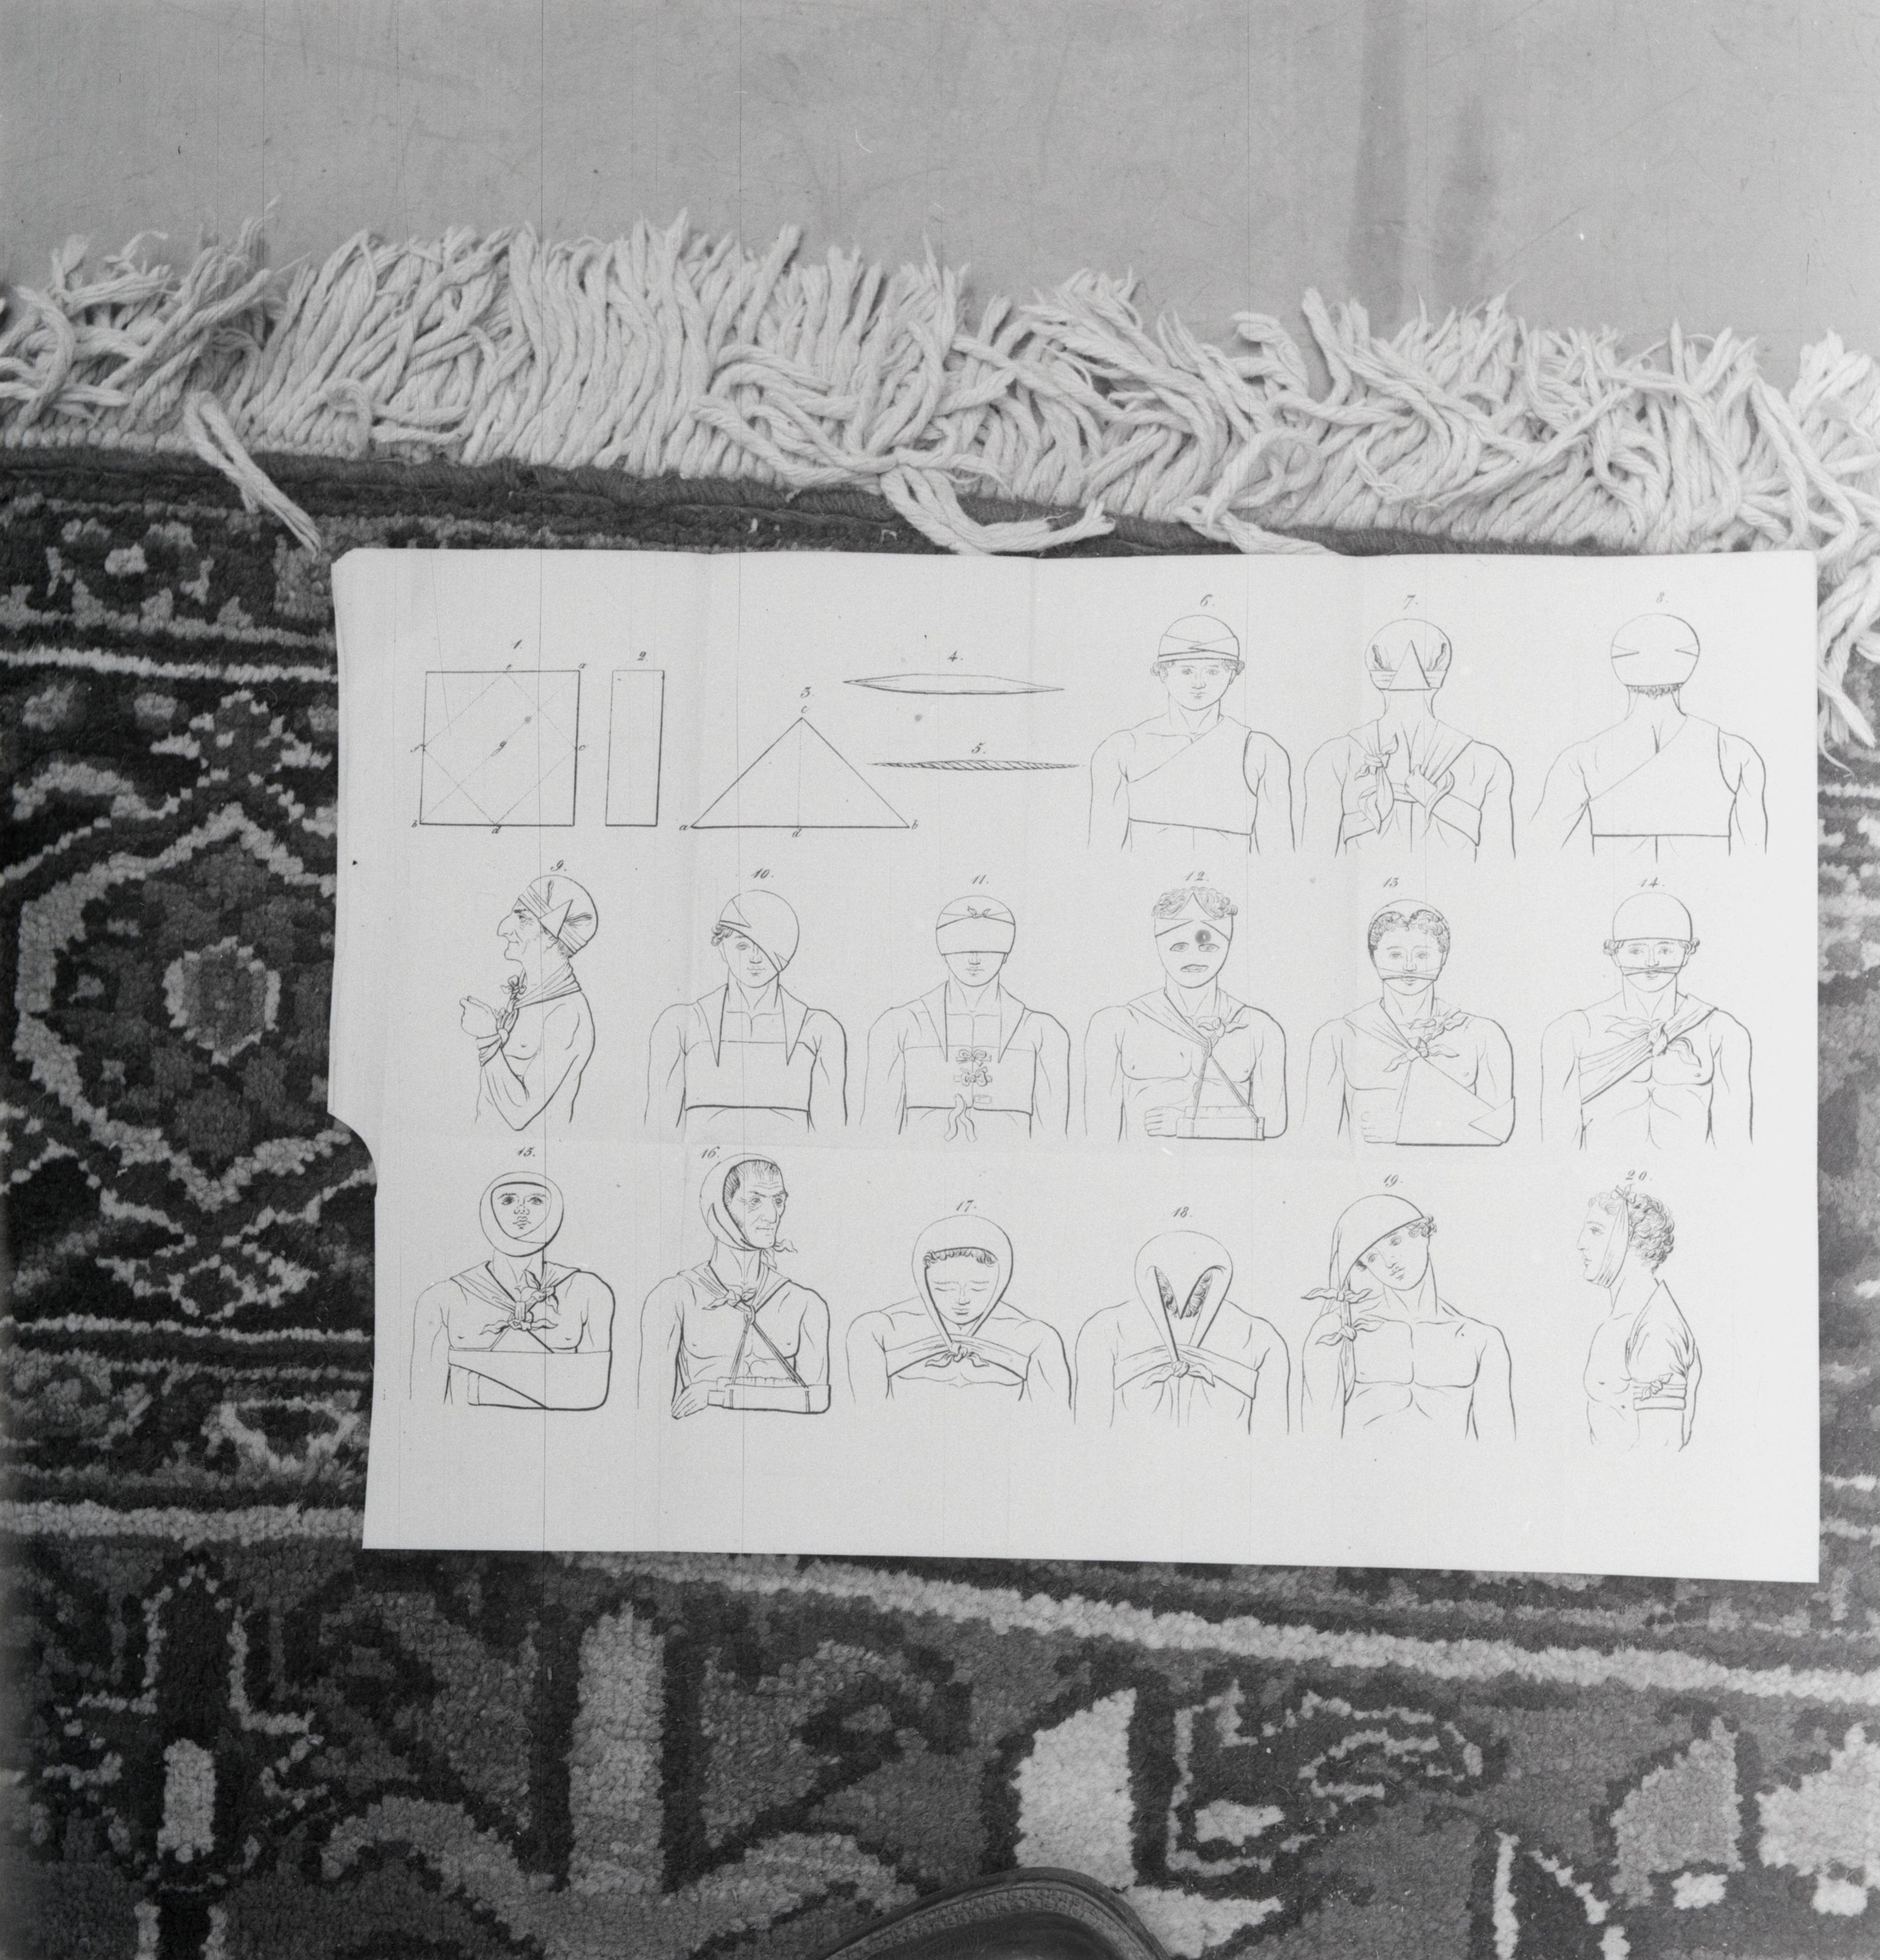 1.
2.
3.
4.
5.
6.
7.
8.
e a
g c
b d
c
a d b
9.
10.
11.
12.
13
14.
15.
16.
17.
18.
19.
20.